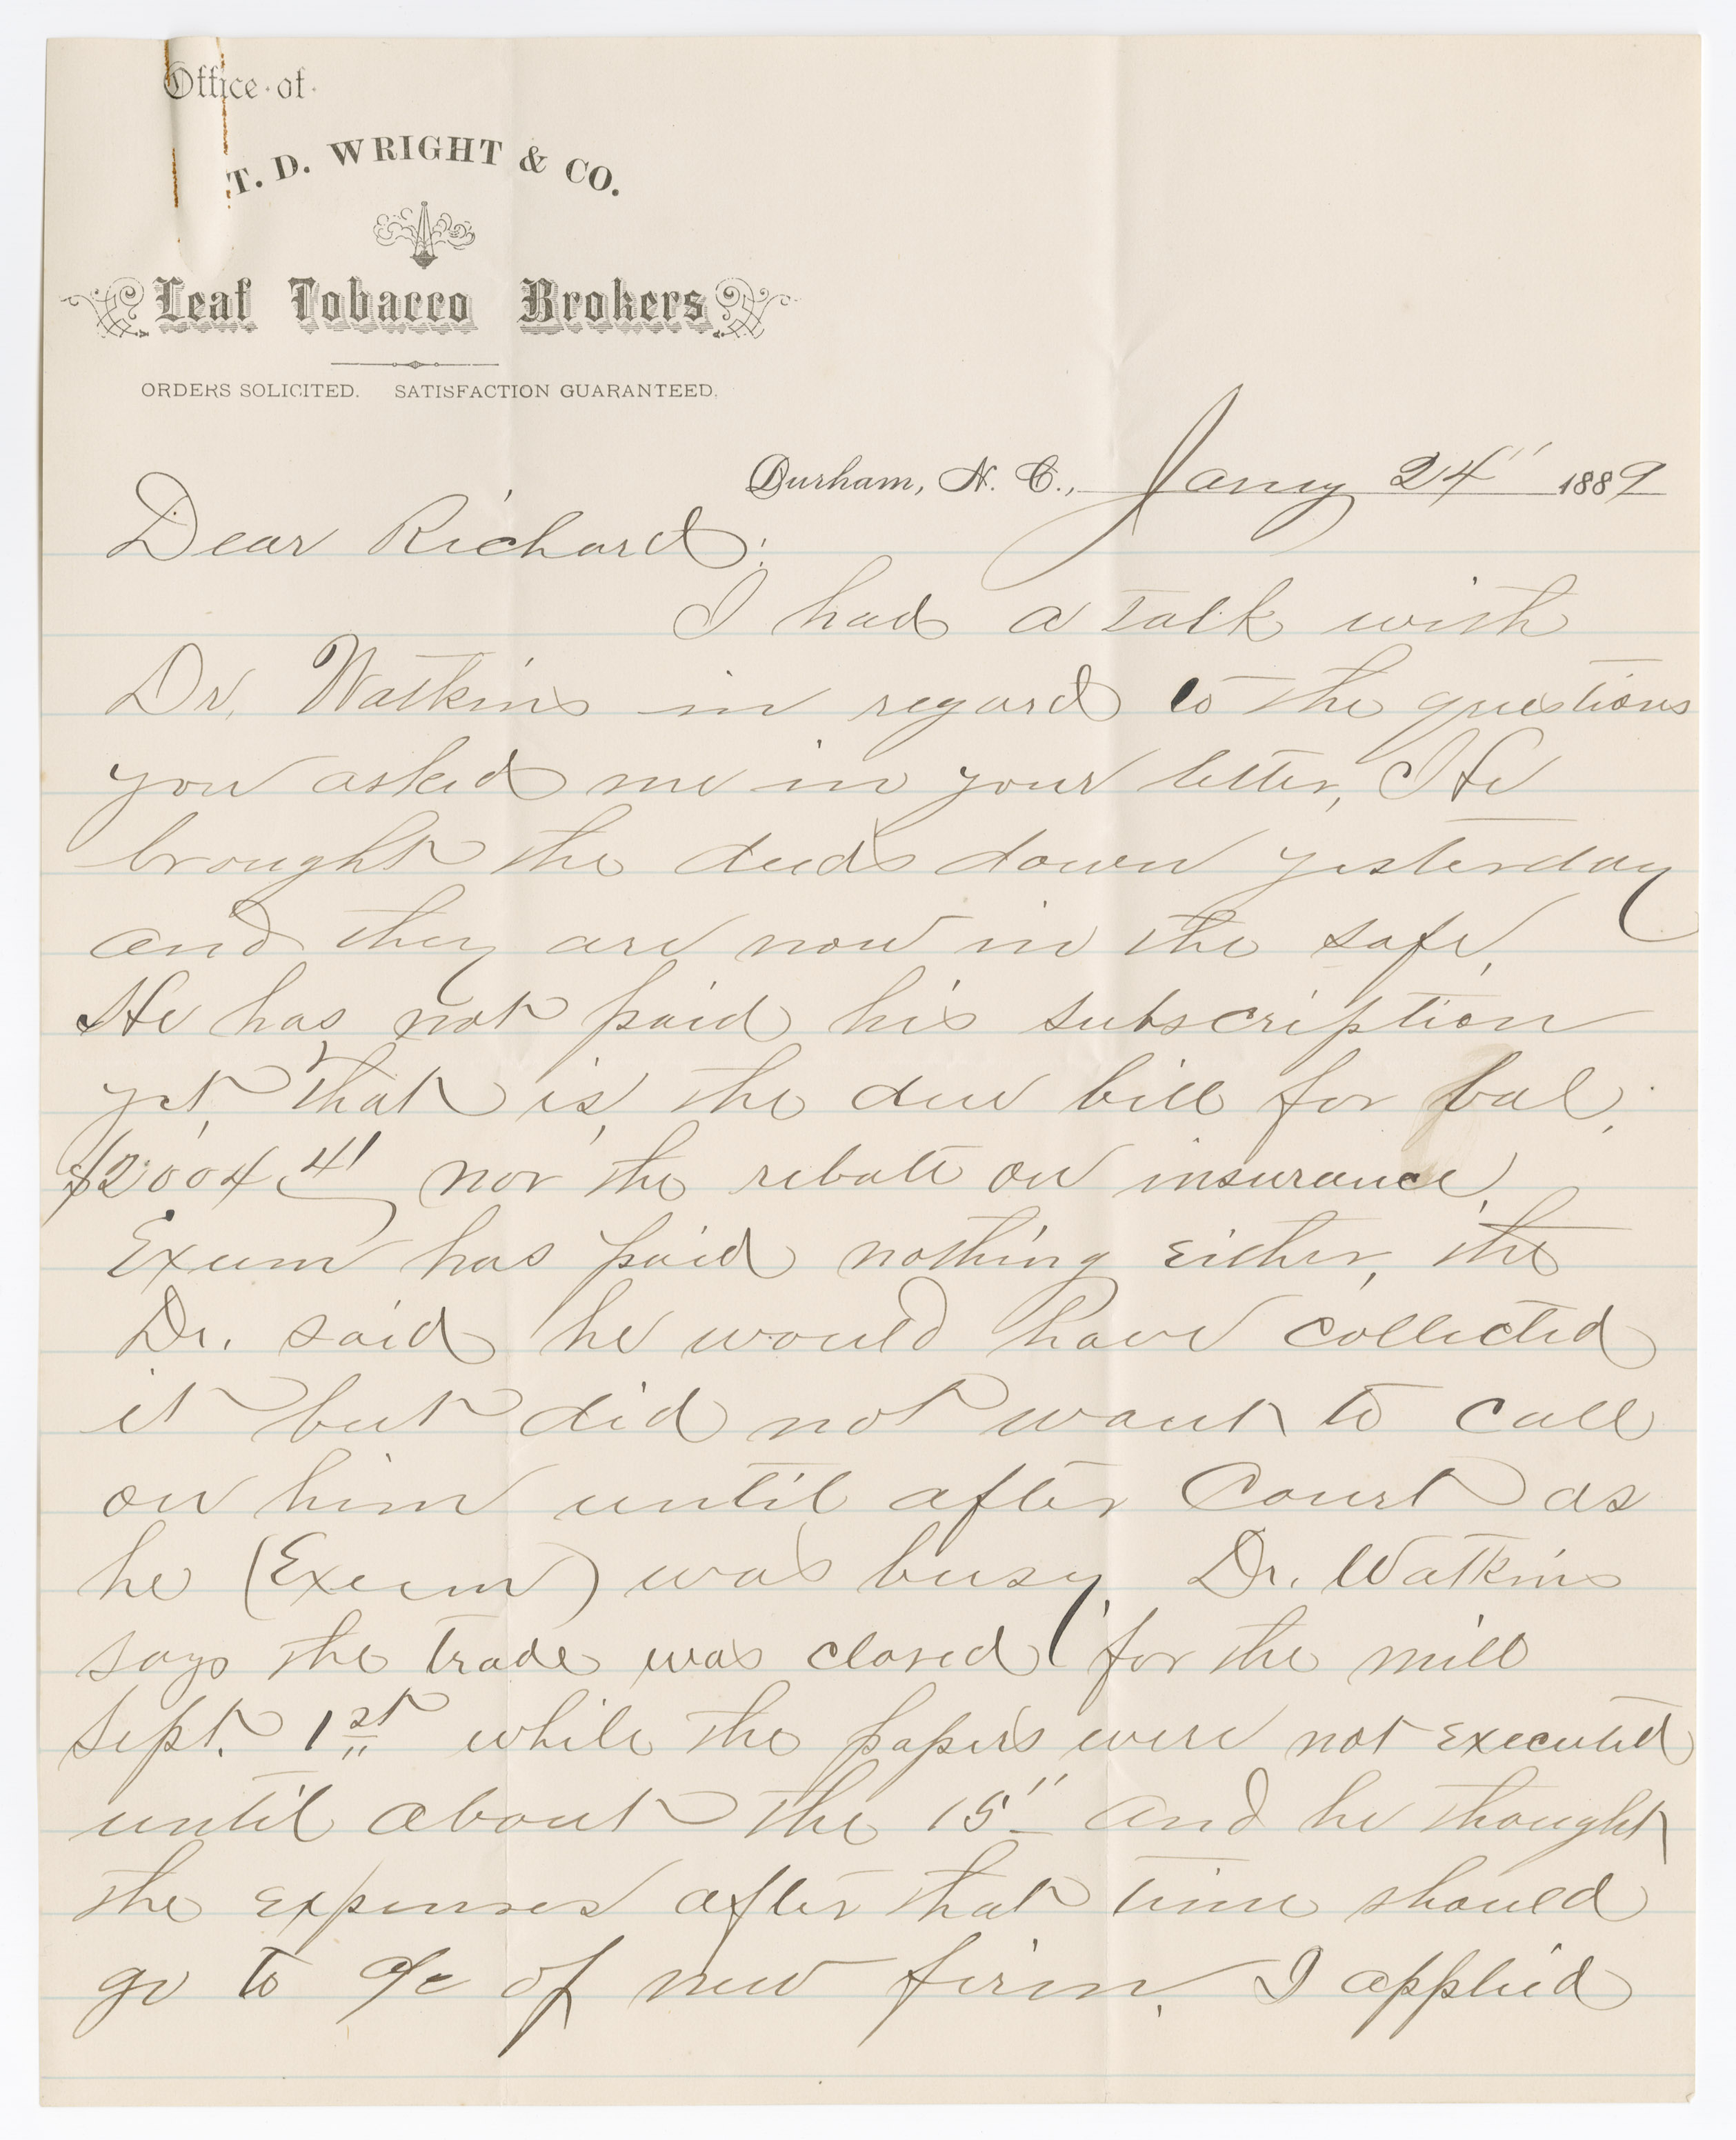 Office of
T. D. WRIGHT & CO.
Leaf Tobacco Brokers
ORDERS SOLICITED. SATISFACTION GUARANTEED.
Durham, N. C., Jany 24" 1889
Dear Richard:
I had a talk with
Dr. Watkins in regard to the questions
you asked me in your letter, He
brought the deeds down yesterday
and they are now in the safe,
He has not paid his subscription
yet, that is, the due bill for bal,
$2004 41 nor the rebate on insurance,
Exum has paid nothing either, the
Dr. said he would have collected
it but did not want to call
on him until after Court as
he (Exum) was busy. Dr. Watkins
says the trade was closed for the mill
Sept. 1st while the papers were not executed
until about the 15" and he thought
the expenses after that time should
go to a/c of new firm. I applied